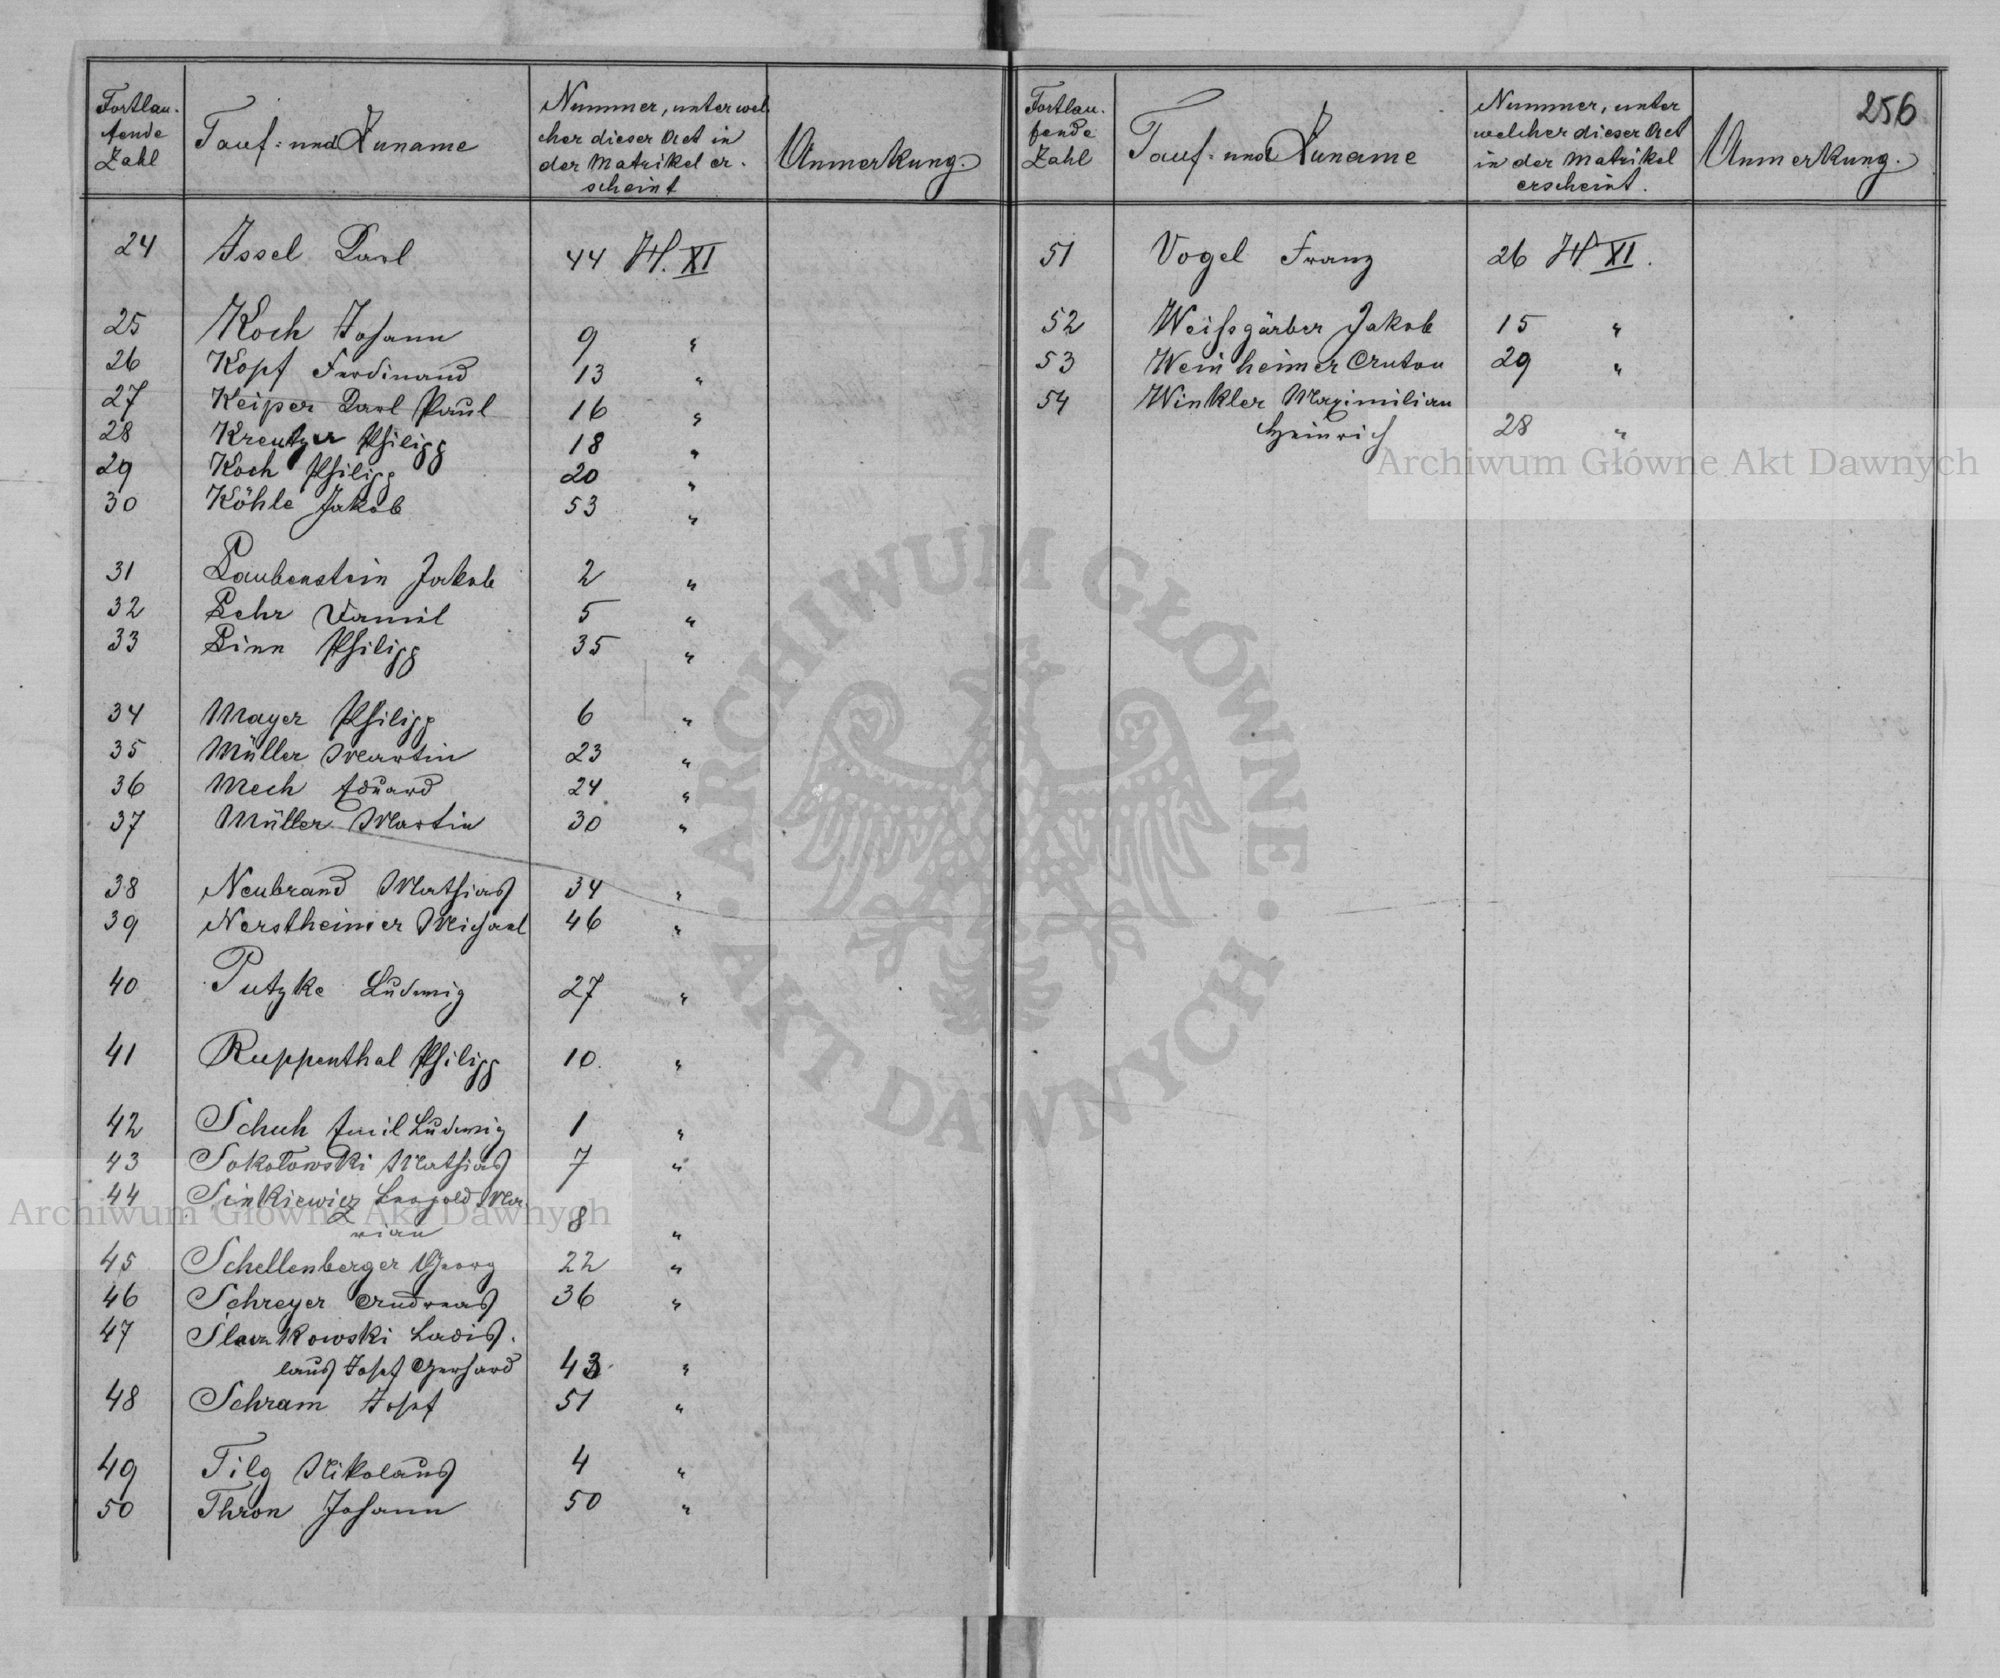 Fortlau-
fende
Zahl
Tauf- und Zuname
Nummer, unter wel
cher dieser Act in
der Matrikel er-
scheint
Anmerkung.
24 Issel Karl 44 H. XI
25 Koch Johann 9 "
26 Kopf Ferdinand 13 "
27 Keiper Karl Paul 16 "
28 Kreutzer Philipp 18 "
29 Koch Philipp 20 "
30 Köhle Jakob 53 "
31 Laubenstein Jakob 2 "
32 Lehr Daniel 5 "
33 Linn Philipp 35 "
34 Mayer Philipp 6 "
35 Müller Martin 23 "
36 Mech Eduard 24 "
37 Müller Martin 30 "
38 Neubrand Mathias 34 "
39 Nerstheimer Michael 46 "
40 Putzke Ludwig 27 "
41 Ruppenthal Philipp 10 "
42 Schuh Emil Ludwig 1 "
43 Sokołowski Mathias 7 "
44 Sinkiewicz Leopold Ma-
rian 8 "
45 Schellenberger Georg 22 "
46 Schreyer Andreas 36 "
47 Kowski Ladis-
laus Josef Gerhard 43 "
48 Schram Josef 51 "
49 Tilg Nikolaus 4 "
50 Thron Johann 50 "
256
Fortlau-
fende
Zahl
Tauf- und Zuname
Nummer, unter
welcher dieser Act
in der Matrikel
erscheint.
Anmerkung.
51 Vogel Franz 26 H XI.
52 Weissgärber Jakob 15 "
53 Weinheimer Anton 29 "
54 Winkler Maximilian
Heinrich 28 "
Archiwum Główne Akt Dawnych
ARCHIWUM GŁÓWNE AKT DAWNYCH
Archiwum Główne Akt Dawnych